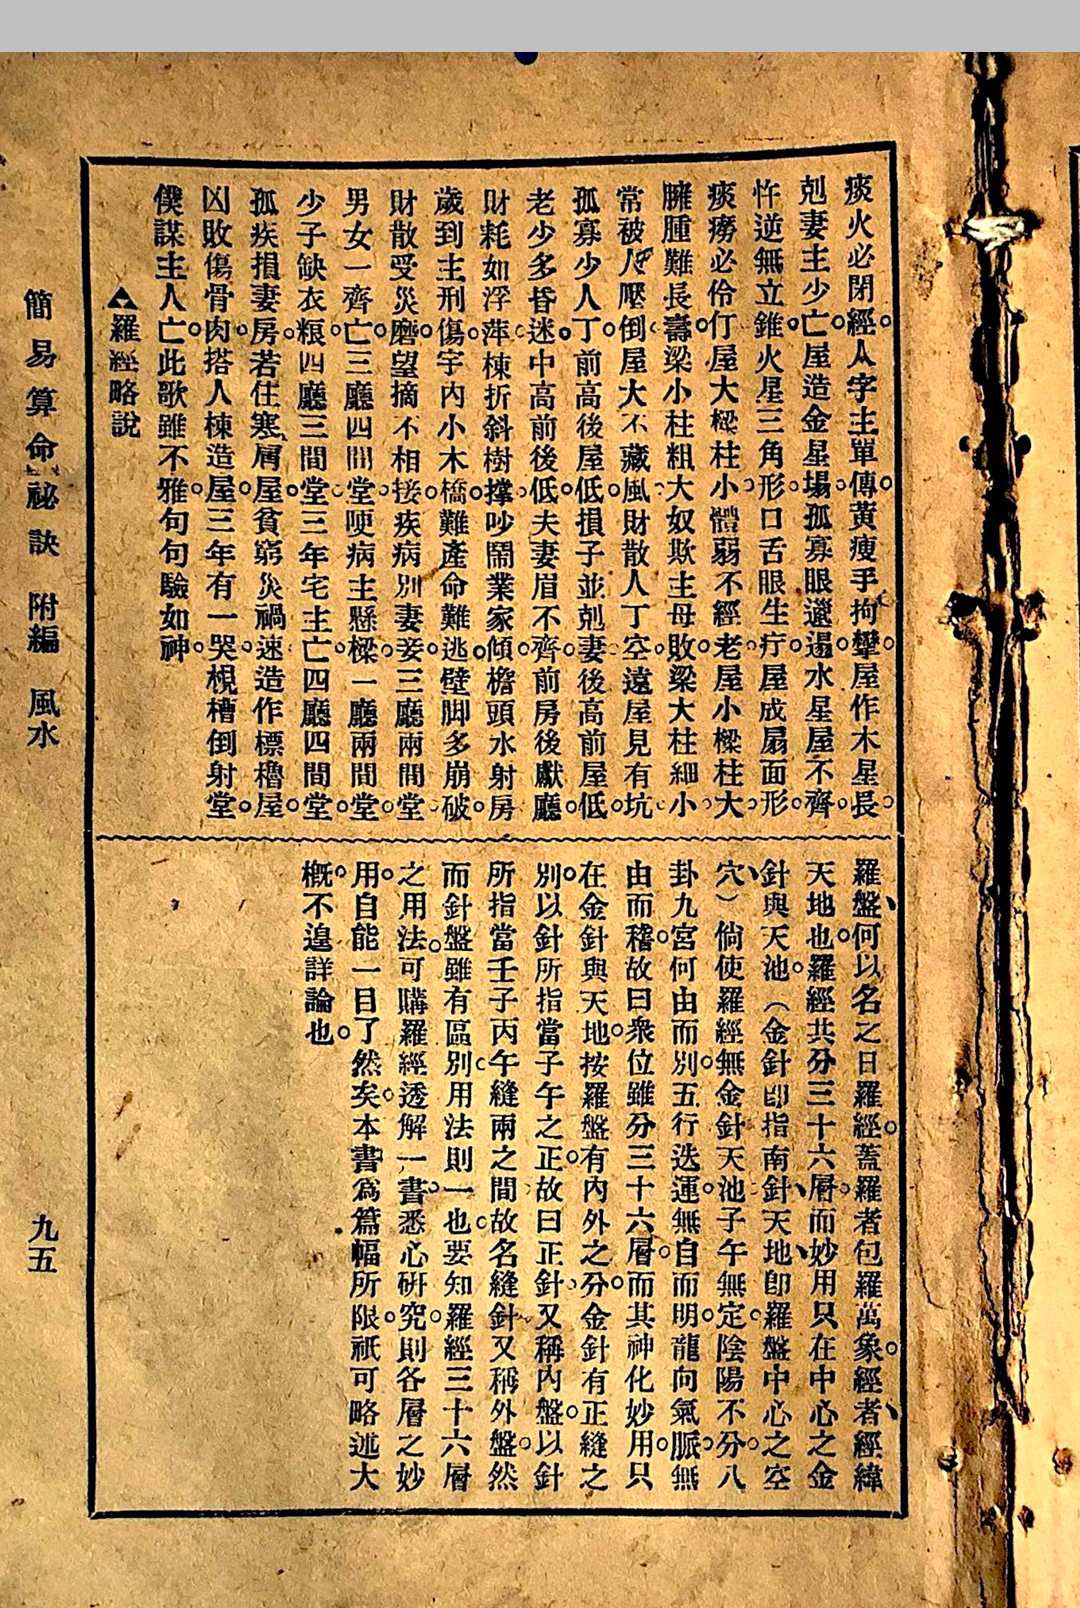 痰火必閉經。人字主單傳。黃瘦手拘攣。屋作木星長。
剋妻主少亡。屋造金星場。孤寡眼邋遢。水星屋不齊。
忤逆無立錐。火星三角形。口舌眼生疔。屋成扇面形。
痰癆必伶仃。屋大樑柱小。體弱不經老。屋小樑柱大。
臃腫難長壽。梁小柱粗大。奴欺主母敗。梁大柱細小。
常被人壓倒。屋大不藏風。財散人丁空。遠屋見有坑。
孤寡少人丁。前高後屋低。損子並剋妻。後高前屋低。
老少多昏迷。中高前後低。夫妻眉不齊。前房後獻廳。
財耗如浮萍。棟折斜樹撐。吵鬧業家傾。檐頭水射房。
歲到主刑傷。宇內小木橋。難產命難逃。壁脚多崩破。
財散受災磨。望摘不相接。疾病別妻妾。三廳兩間堂。
男女一齊亡。三廳四間堂。哽病主懸樑。一廳兩間堂。
少子缺衣粮。四廳三間堂。三年宅主亡。四廳四間堂。
孤疾損妻房。若住寒層屋。貧窮災禍速。造作標櫓屋。
凶敗傷骨肉。搭人棟造屋。三年有一哭。槻槽倒射堂。
僕謀主人亡。此歌雖不雅。句句驗如神。
▲羅經略說
羅盤、何以名之曰羅經。蓋羅者包羅萬象。經者、經緯
天地也。羅經共分三十六層。而妙用只在中心之金
針與天池。（金針卽指南針、天地卽、羅盤中心之空
穴、）倘使羅經無金針天池。子午無定。陰陽不分。八
卦九宮何由而別。五行迭運。無自而明。龍向氣脈。無
由而稽。故曰衆位雖分三十六層。而其神化妙用。只
在金針與天地。按羅盤有內外之分。金針有正縫之
別。以針所指當子午之正。故曰正針。又稱內盤。以針
所指當壬子丙午縫兩之間。故名縫針。又稱外盤。然
而針盤雖有區別。用法則一也。要知羅經三十六層
之用法。可購羅經透解一書。悉心研究。則各層之妙
用。自能一目了然矣。本書爲篇幅所限。祇可略述大
槪。不遑詳論也。
簡易算命祕訣 附編 風水
九五